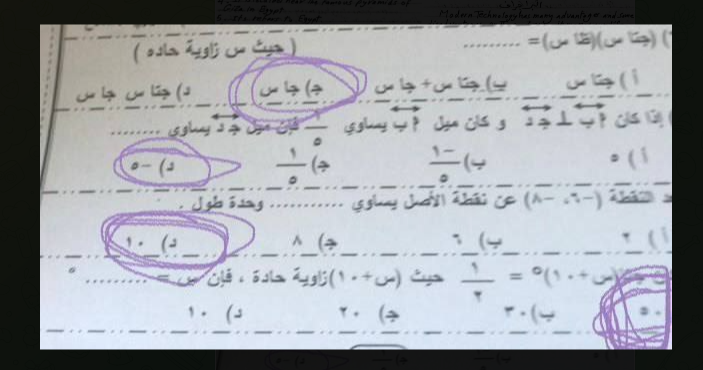 (جتا س)(ظا س)= .......... ( حيث س زاوية حاده )
أ ) جتا س ب) جتا س+ جا س ج) جا س د) جتا س جا س
إذا كان أ ب ⊥ ج د و كان ميل أ ب يساوي ١/٥ فإن ميل ج د يساوي ........
أ ) ٥ ب) -١/٥ ج) ١/٥ د) -٥
النقطة (-٦، -٨) عن نقطة الأصل يساوي ............ وحدة طول .
أ ) ٢ ب) ٦ ج) ٨ د) ١٠
(س+١٠)° = ١/٢ حيث (س+١٠) زاوية حادة ، فإن س = .......... °
٥٠ ب) ٣٠ ج) ٢٠ د) ١٠